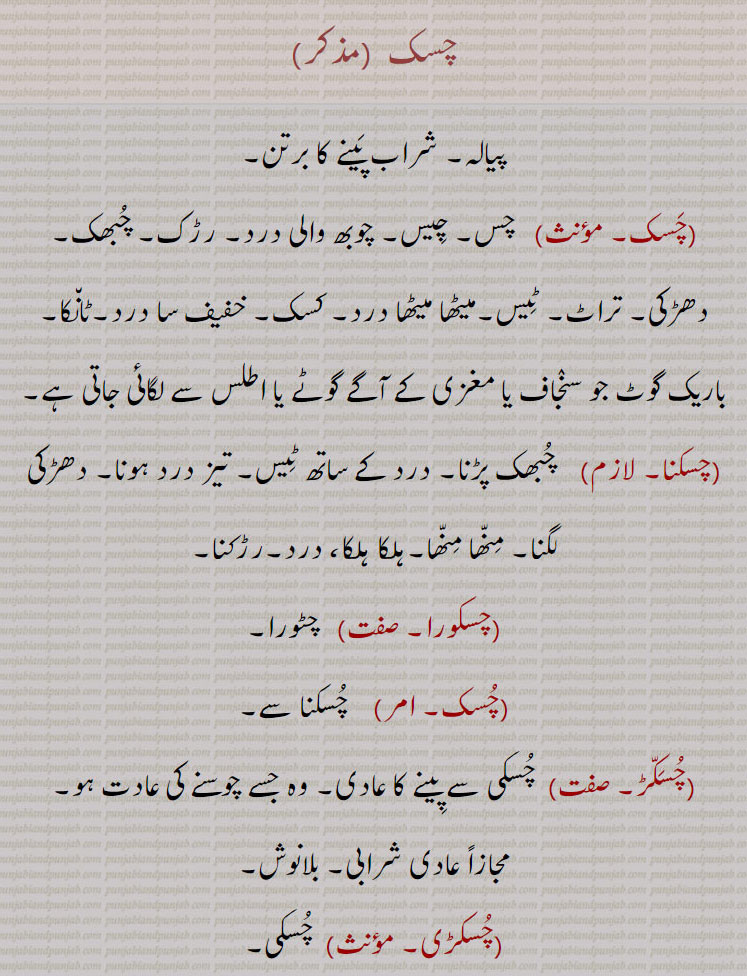 چسک (مذکر)
پیالہ۔ شراب پَینے کا برتن۔
(چَسک۔ مؤنث) چس۔ چِیس۔ چوبھ والی درد۔ رڑک۔ چُبھک۔
دھڑکی۔ تراٹ۔ ٹِیس۔میٹھا میٹھا درد۔ کسک۔ خفیف سا درد۔ٹانّکا۔
باریک گوٹ جو سنجاف یا مغزی کے آگے گوٹے یا اطلس سے لگائی جاتی ہے۔
(چسکنا۔ لازم) چُبھک پڑنا۔ درد کے ساتھ ٹِیس۔ تیز درد ہونا۔ دھڑکی
لگنا۔ مِنّھا مِنّھا۔ہلکا ہلکا، درد۔رڑکنا۔
(چسکورا۔ صفت) چٹورا۔
(چُسک۔ امر) چُسکنا سے۔
(چُسکّڑ۔ صفت) چُسکی سے پِینے کا عادی۔ وہ جسے چوسنے کی عادت ہو۔
مجازاً عادی شرابی۔ بلانوش۔
(چُسکڑی۔ مؤنث) چُسکی۔